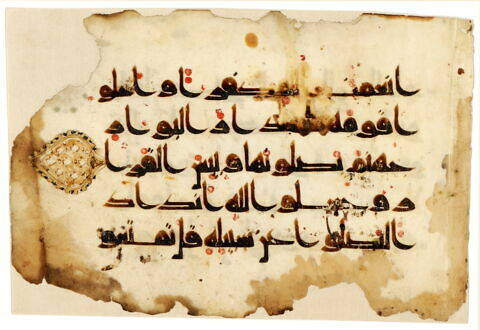 ا نعمت كفرا واحلو
ا قومهم دار البوار
جهنم يصلونها وبئس القرا
ر وجعلوا لله اندادا
ليضلوا عن سبيله قل تمتعو